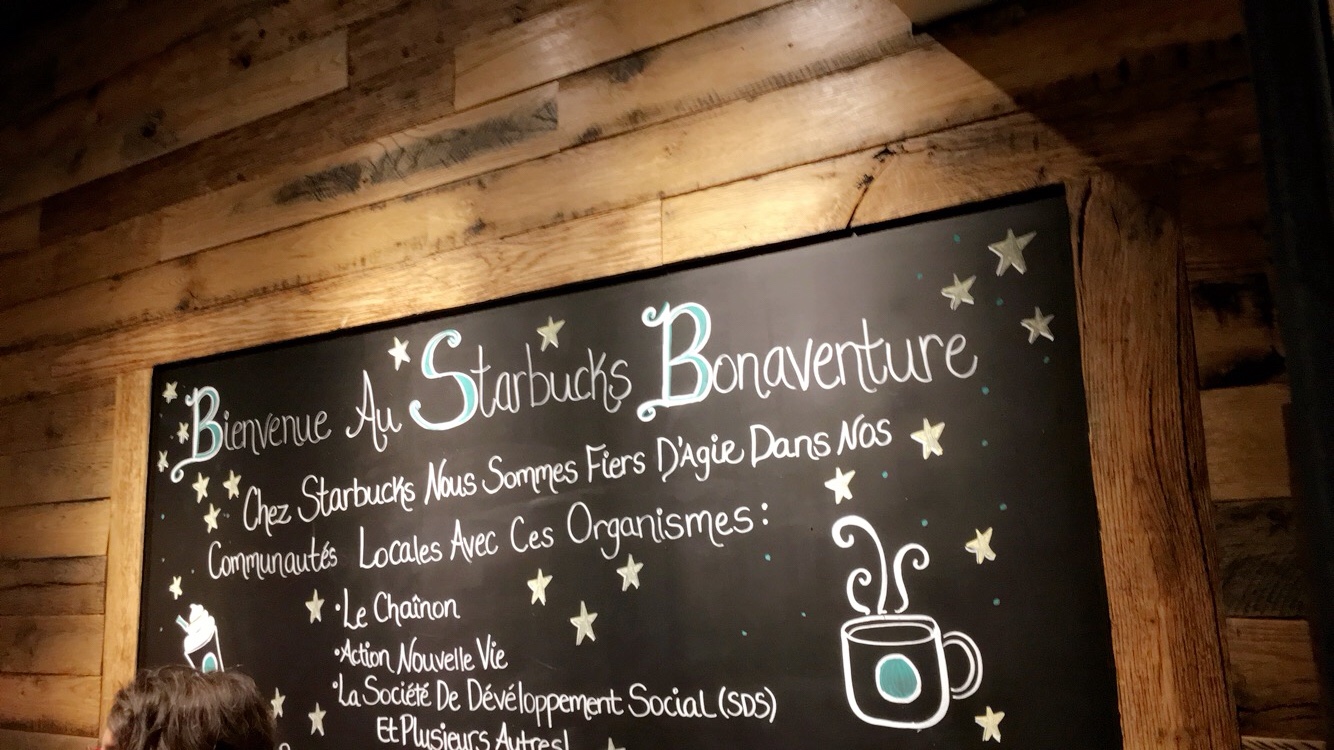 Bienvenue Au Starbucks Bonaventure
Chez Starbucks Nous Sommes Fiers D'Agir Dans Nos
Communautés Locales Avec Ces Organismes:
•Le Chaînon
•Action Nouvelle Vie
•La Société De Dévéloppement Social (SDS)
Et Plusieurs Autres!